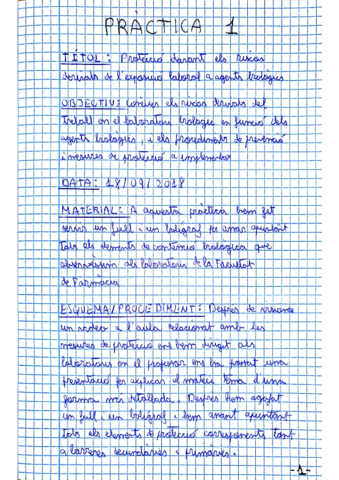 PRÀCTICA 1
TÍTOL: Protecció davant els riscos
derivats de l'exposició laboral a agents biològics
OBJECTIU: conèixer els riscos derivats del
treball en el laboratori biològic en funció dels
agents biològics, i els procediments de prevenció
i mesures de protecció a implementar
DATA: 18/09/2018
MATERIAL: A aquesta pràctica hem fet
servir un full i un bolígraf per anar apuntant
tots els elements de contenció biològica que
observàssim als laboratoris de la Facultat
de Farmàcia
ESQUEMA/PROCEDIMENT: Després de
un vídeo a l'aula relacionat amb les
mesures de protecció ens hem dirigit als
laboratoris on el professor ens ha portat una
presentació per explicar el mateix tema d'una
forma més detallada. Després hem agafat
un full i un bolígraf i hem anant apuntant
tots els elements de protecció corresponents tant
a barreres secundàries i primàries.
-1-